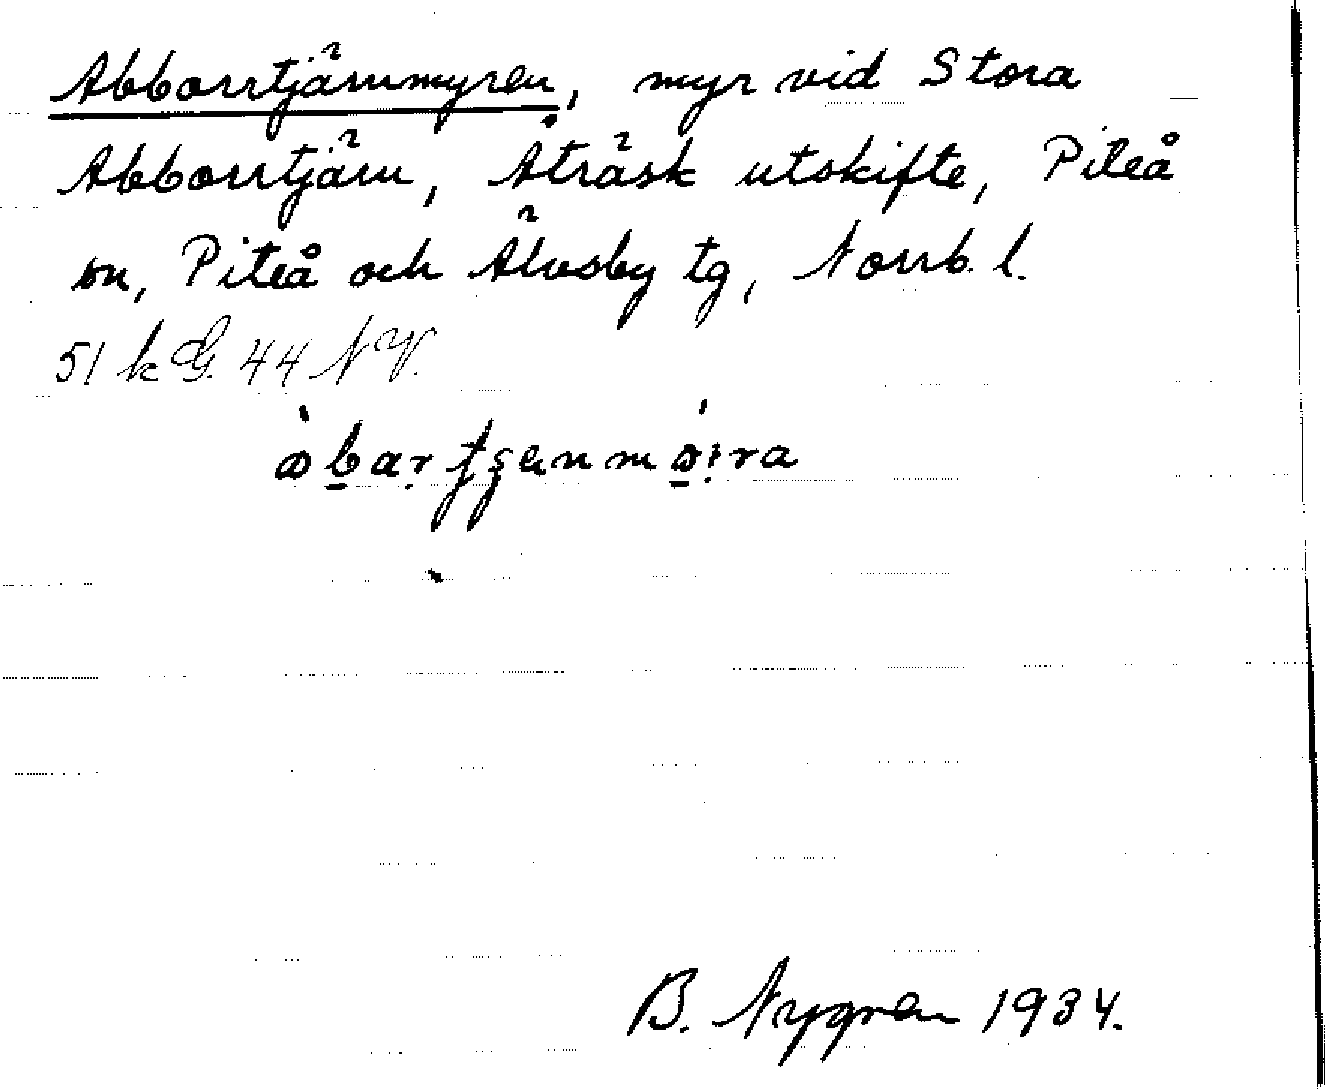 Abborrtjärnmyren, myr vid Stora
Abborrtjärn, Åträsk utskifte, Piteå
sn, Piteå och Älvsby tg, Norrb. l.
51 k G. 44 NV.
B. Nygren 1934.